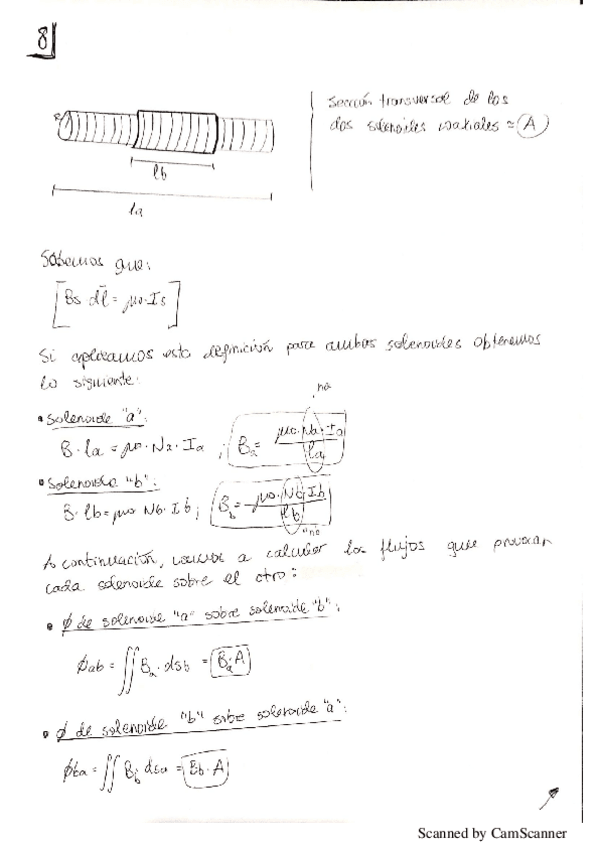 8
Sección transversal de los
dos solenoides coaxiales = A
lb
la
Sabemos que:
[Bs dl = μ0·Is]
Si aplicamos esta definición para ambos solenoides obtenemos
lo siguiente:
na
• Solenoide "a":
B·la = μ0·Na·Ia ; Ba = μ0·Na·Ia / la
• Solenoide "b":
B·lb = μ0·Nb·Ib ; Bb = μ0·Nb·Ib / lb
A continuación, vamos a calcular los flujos que provocan
cada solenoide sobre el otro:
• ϕ de solenoide "a" sobre solenoide "b":
ϕab = ∬ Ba · dsb = Ba·A
• ϕ de solenoide "b" sobre solenoide "a":
ϕba = ∬ Bb dsa = Bb·A
Scanned by CamScanner